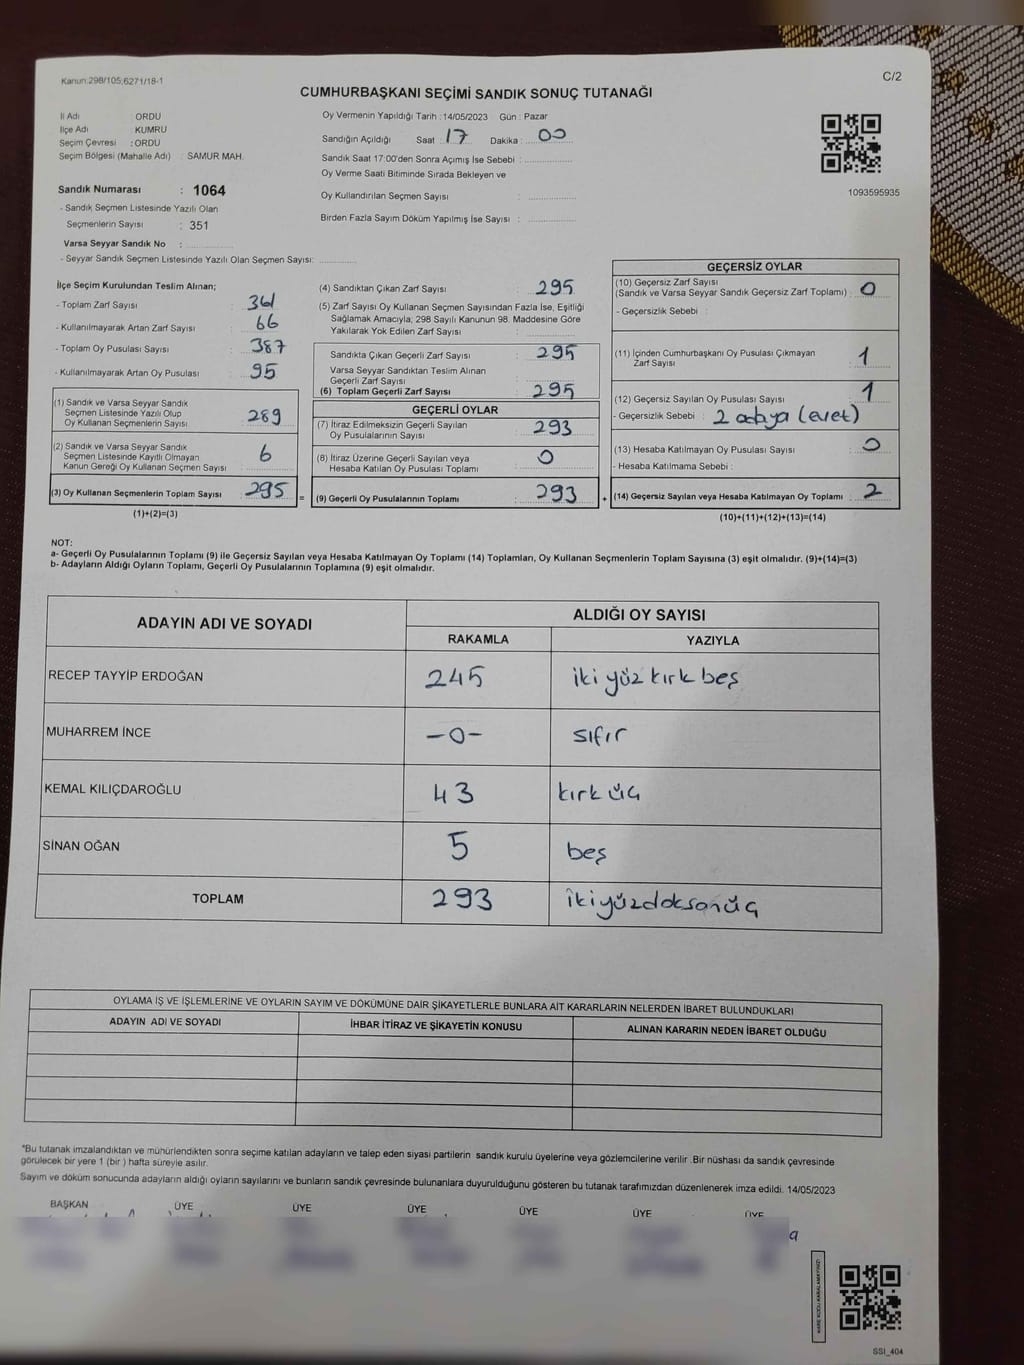 Kanun:298/105,6271/18-1
C/2
CUMHURBAŞKANI SEÇİMİ SANDIK SONUÇ TUTANAĞI
İl Adı : ORDU
İlçe Adı : KUMRU
Seçim Çevresi : ORDU
Seçim Bölgesi (Mahalle Adı) : SAMUR MAH.
Sandık Numarası : 1064
- Sandık Seçmen Listesinde Yazılı Olan
Seçmenlerin Sayısı : 351
Varsa Seyyar Sandık No :
- Seyyar Sandık Seçmen Listesinde Yazılı Olan Seçmen Sayısı:
Oy Vermenin Yapıldığı Tarih :14/05/2023 Gün : Pazar
Sandığın Açıldığı Saat : 17 Dakika : 00
Sandık Saat 17:00'den Sonra Açımış İse Sebebi :
Oy Verme Saati Bitiminde Sırada Bekleyen ve
Oy Kullandırılan Seçmen Sayısı :
Birden Fazla Sayım Döküm Yapılmış İse Sayısı :
1093595935
İlçe Seçim Kurulundan Teslim Alınan;
- Toplam Zarf Sayısı : 361
- Kullanılmayarak Artan Zarf Sayısı : 66
- Toplam Oy Pusulası Sayısı : 387
- Kullanılmayarak Artan Oy Pusulası : 95
(1) Sandık ve Varsa Seyyar Sandık
Seçmen Listesinde Yazılı Olup
Oy Kullanan Seçmenlerin Sayısı : 289
(2) Sandık ve Varsa Seyyar Sandık
Seçmen Listesinde Kayıtlı Olmayan
Kanun Gereği Oy Kullanan Seçmen Sayısı : 6
(3) Oy Kullanan Seçmenlerin Toplam Sayısı : 295
(1)+(2)=(3)
(4) Sandıktan Çıkan Zarf Sayısı : 295
(5) Zarf Sayısı Oy Kullanan Seçmen Sayısından Fazla İse, Eşitliği
Sağlamak Amacıyla, 298 Sayılı Kanunun 98. Maddesine Göre
Yakılarak Yok Edilen Zarf Sayısı :
Sandıkta Çıkan Geçerli Zarf Sayısı : 295
Varsa Seyyar Sandıktan Teslim Alınan
Geçerli Zarf Sayısı :
(6) Toplam Geçerli Zarf Sayısı : 295
GEÇERLİ OYLAR
(7) İtiraz Edilmeksizin Geçerli Sayılan
Oy Pusulalarının Sayısı : 293
(8) İtiraz Üzerine Geçerli Sayılan veya
Hesaba Katılan Oy Pusulası Toplamı : 0
= (9) Geçerli Oy Pusulalarının Toplamı : 293 +
GEÇERSİZ OYLAR
(10) Geçersiz Zarf Sayısı
(Sandık ve Varsa Seyyar Sandık Geçersiz Zarf Toplamı) : 0
- Geçersizlik Sebebi :
(11) İçinden Cumhurbaşkanı Oy Pusulası Çıkmayan
Zarf Sayısı : 1
(12) Geçersiz Sayılan Oy Pusulası Sayısı : 1
- Geçersizlik Sebebi : 2 adaya (evet)
(13) Hesaba Katılmayan Oy Pusulası Sayısı : 0
- Hesaba Katılmama Sebebi :
(14) Geçersiz Sayılan veya Hesaba Katılmayan Oy Toplamı : 2
(10)+(11)+(12)+(13)=(14)
NOT:
a- Geçerli Oy Pusulalarının Toplamı (9) ile Geçersiz Sayılan veya Hesaba Katılmayan Oy Toplamı (14) Toplamları, Oy Kullanan Seçmenlerin Toplam Sayısına (3) eşit olmalıdır. (9)+(14)=(3)
b- Adayların Aldığı Oyların Toplamı, Geçerli Oy Pusulalarının Toplamına (9) eşit olmalıdır.
ADAYIN ADI VE SOYADI
ALDIĞI OY SAYISI
RAKAMLA YAZIYLA
RECEP TAYYİP ERDOĞAN 245 iki yüz kırk beş
MUHARREM İNCE -0- sıfır
KEMAL KILIÇDAROĞLU 43 kırk üç
SİNAN OĞAN 5 beş
TOPLAM 293 ikiyüzdoksanüç
OYLAMA İŞ VE İŞLEMLERİNE VE OYLARIN SAYIM VE DÖKÜMÜNE DAİR ŞİKAYETLERLE BUNLARA AİT KARARLARIN NELERDEN İBARET BULUNDUKLARI
ADAYIN ADI VE SOYADI İHBAR İTİRAZ VE ŞİKAYETİN KONUSU ALINAN KARARIN NEDEN İBARET OLDUĞU
*Bu tutanak imzalandıktan ve mühürlendikten sonra seçime katılan adayların ve talep eden siyasi partilerin sandık kurulu üyelerine veya gözlemcilerine verilir .Bir nüshası da sandık çevresinde
görülecek bir yere 1 (bir ) hafta süreyle asılır.
Sayım ve döküm sonucunda adayların aldığı oyların sayılarını ve bunların sandık çevresinde bulunanlara duyurulduğunu gösteren bu tutanak tarafımızdan düzenlenerek imza edildi. 14/05/2023
BAŞKAN ÜYE ÜYE ÜYE ÜYE ÜYE ÜYE
SSI_404